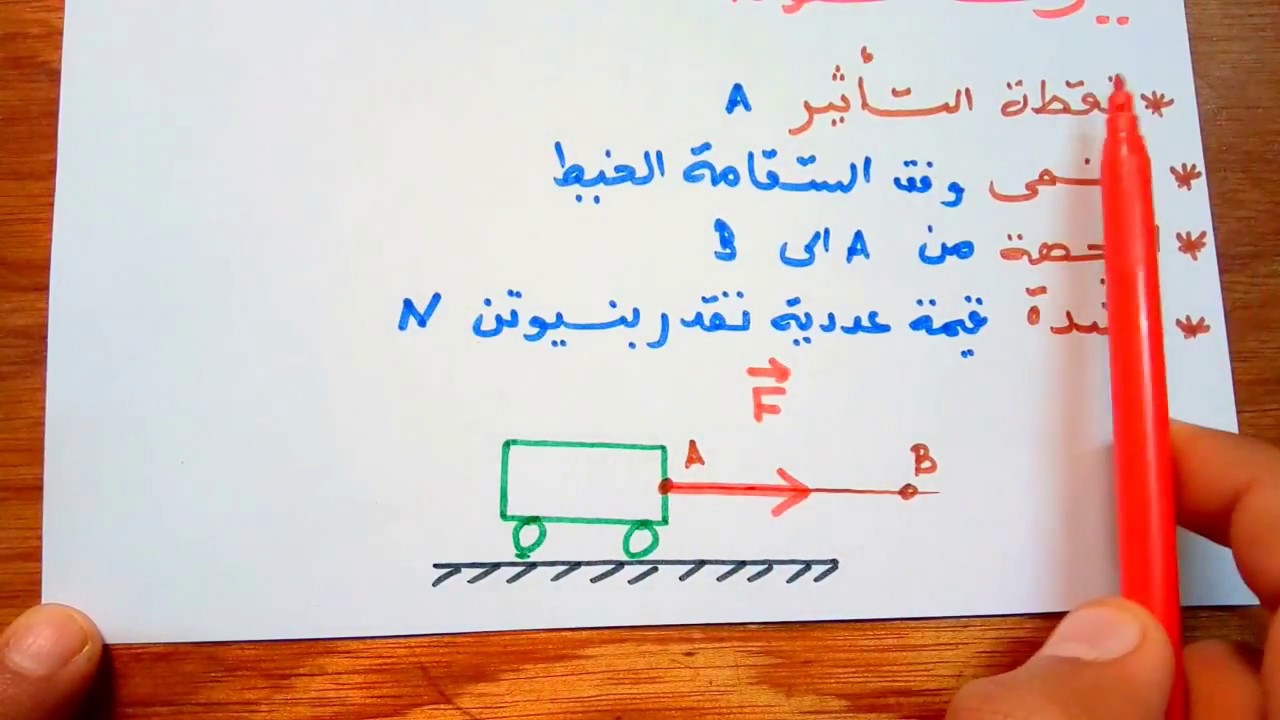 نقطة التأثير A
وفق استقامة الخيط
من A الى B
قيمة عددية تقدر بنسيوتن N
F
A
B